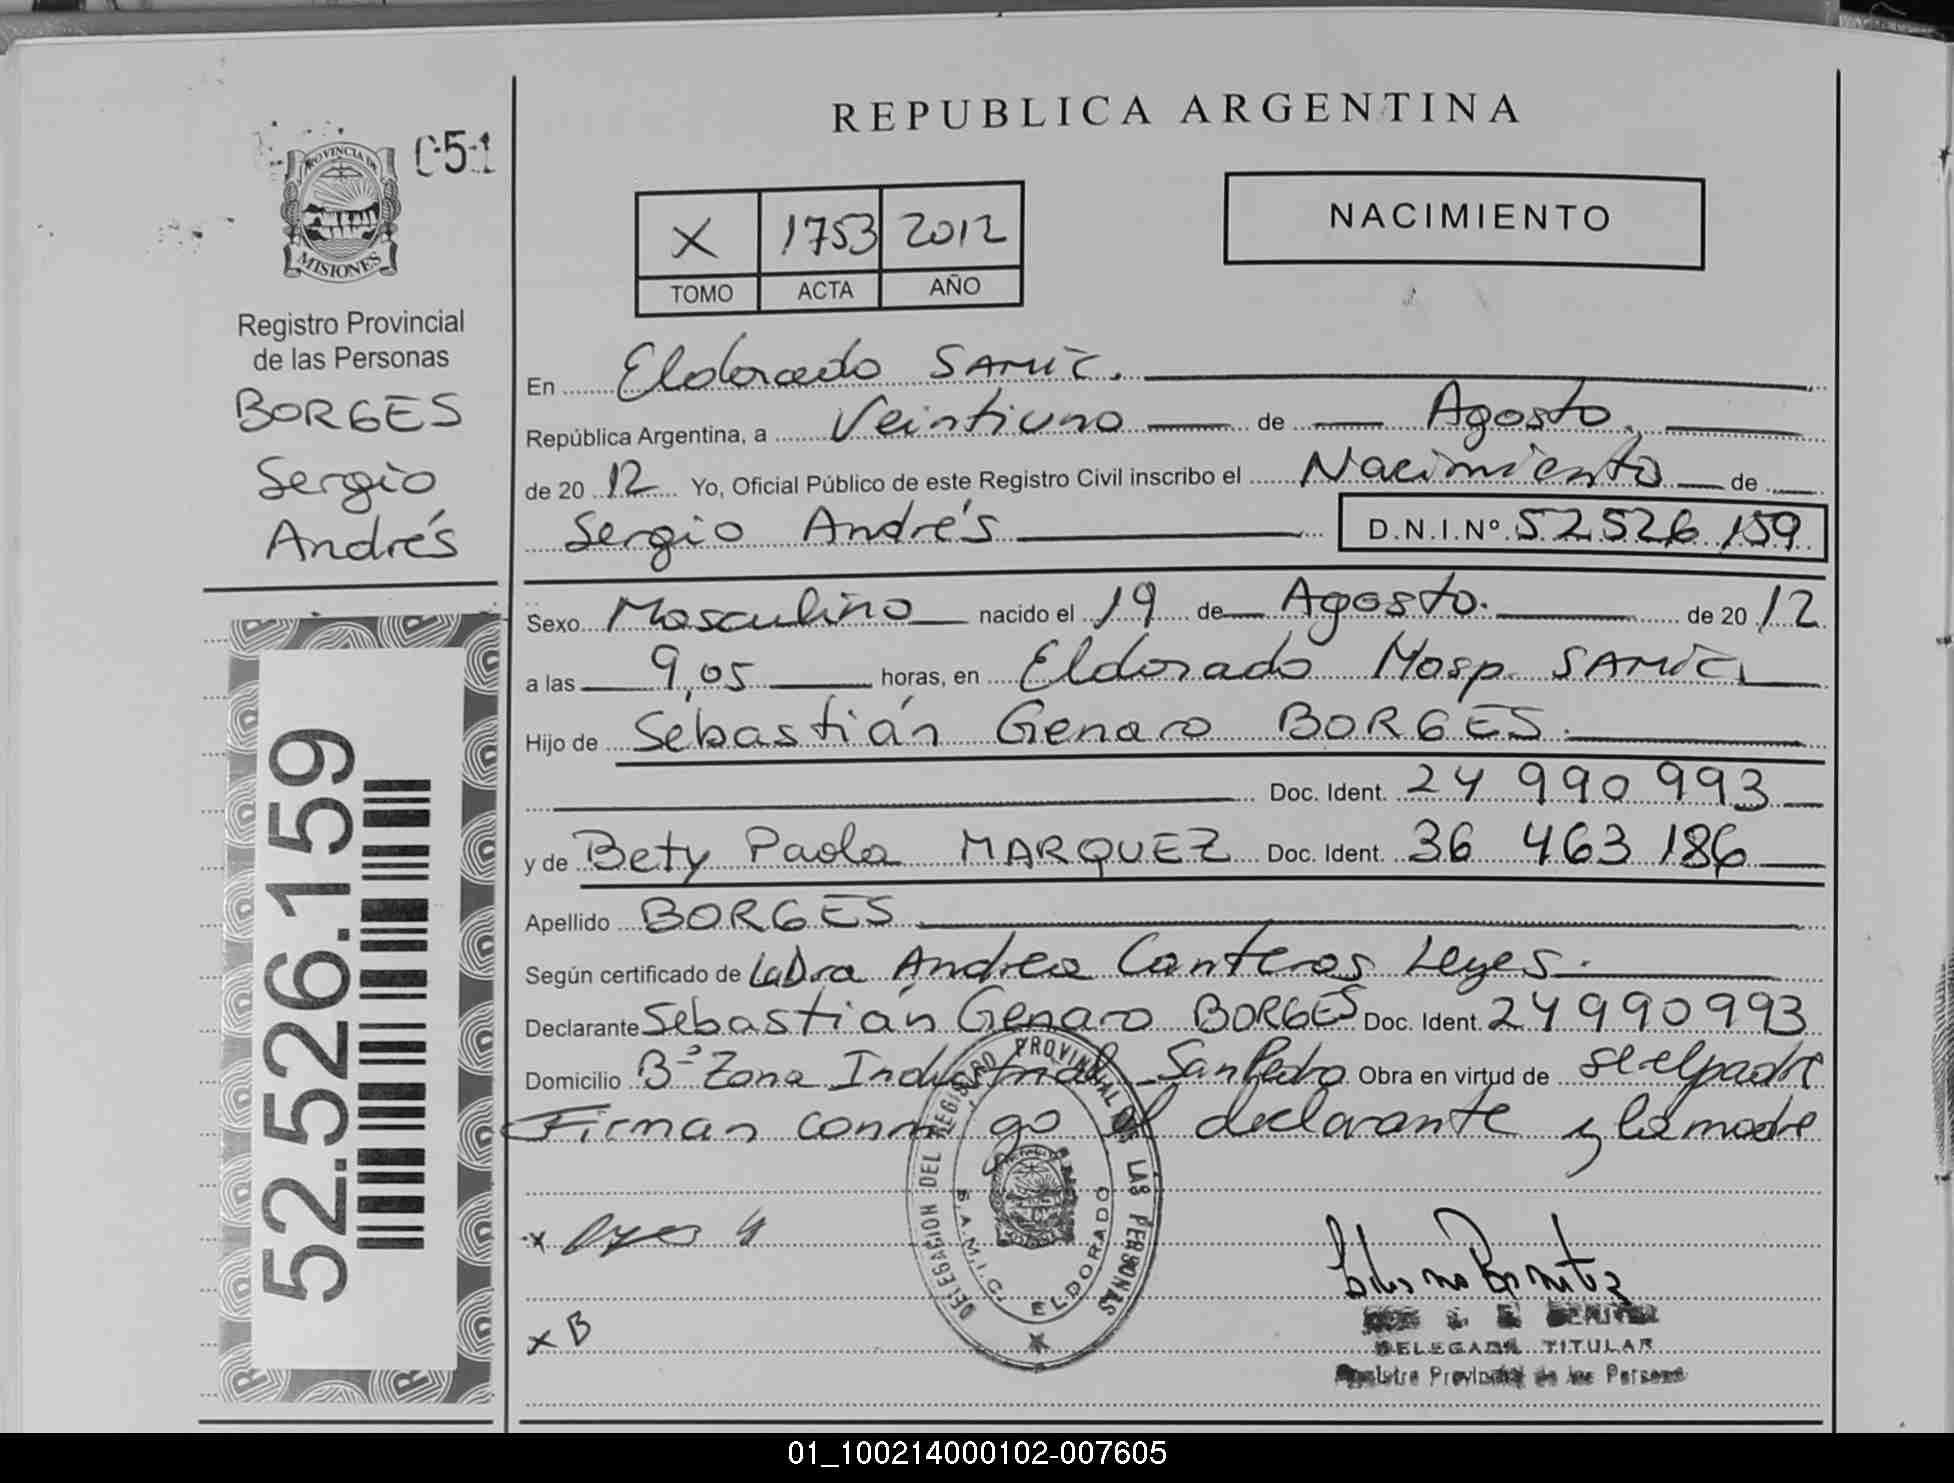 REPUBLICA ARGENTINA
PROVINCIA DE
MISIONES
051
Registro Provincial
de las Personas
BORGES
Sergio
Andrés
52.526.159
X 1753 2012
TOMO ACTA AÑO
NACIMIENTO
En Eldorado SAMIC.
República Argentina, a Veintiuno de Agosto.
de 2012 Yo, Oficial Público de este Registro Civil inscribo el Nacimiento de
Sergio Andrés D.N.I.Nº 52526159
Sexo Masculino nacido el 19 de Agosto. de 2012
a las 9,05 horas, en Eldorado Hosp. SAMIC
Hijo de Sebastián Genaro BORGES.
Doc. Ident. 24 990 993
y de Bety Paola MARQUEZ Doc. Ident. 36 463 186
Apellido BORGES
Según certificado de La Dra Andrea Canteros Leyes.
Declarante Sebastián Genaro BORGES Doc. Ident. 24990993
Domicilio Bº Zona Industrial San Pedro Obra en virtud de ser el padre
Firman conmigo el declarante y la madre
DELEGACION DEL REGISTRO PROVINCIAL DE LAS PERSONAS
S.A.M.I.C. ELDORADO
x
x B
BENITEZ
DELEGADA TITULAR
Registro Provincial de las Personas
01_100214000102-007605